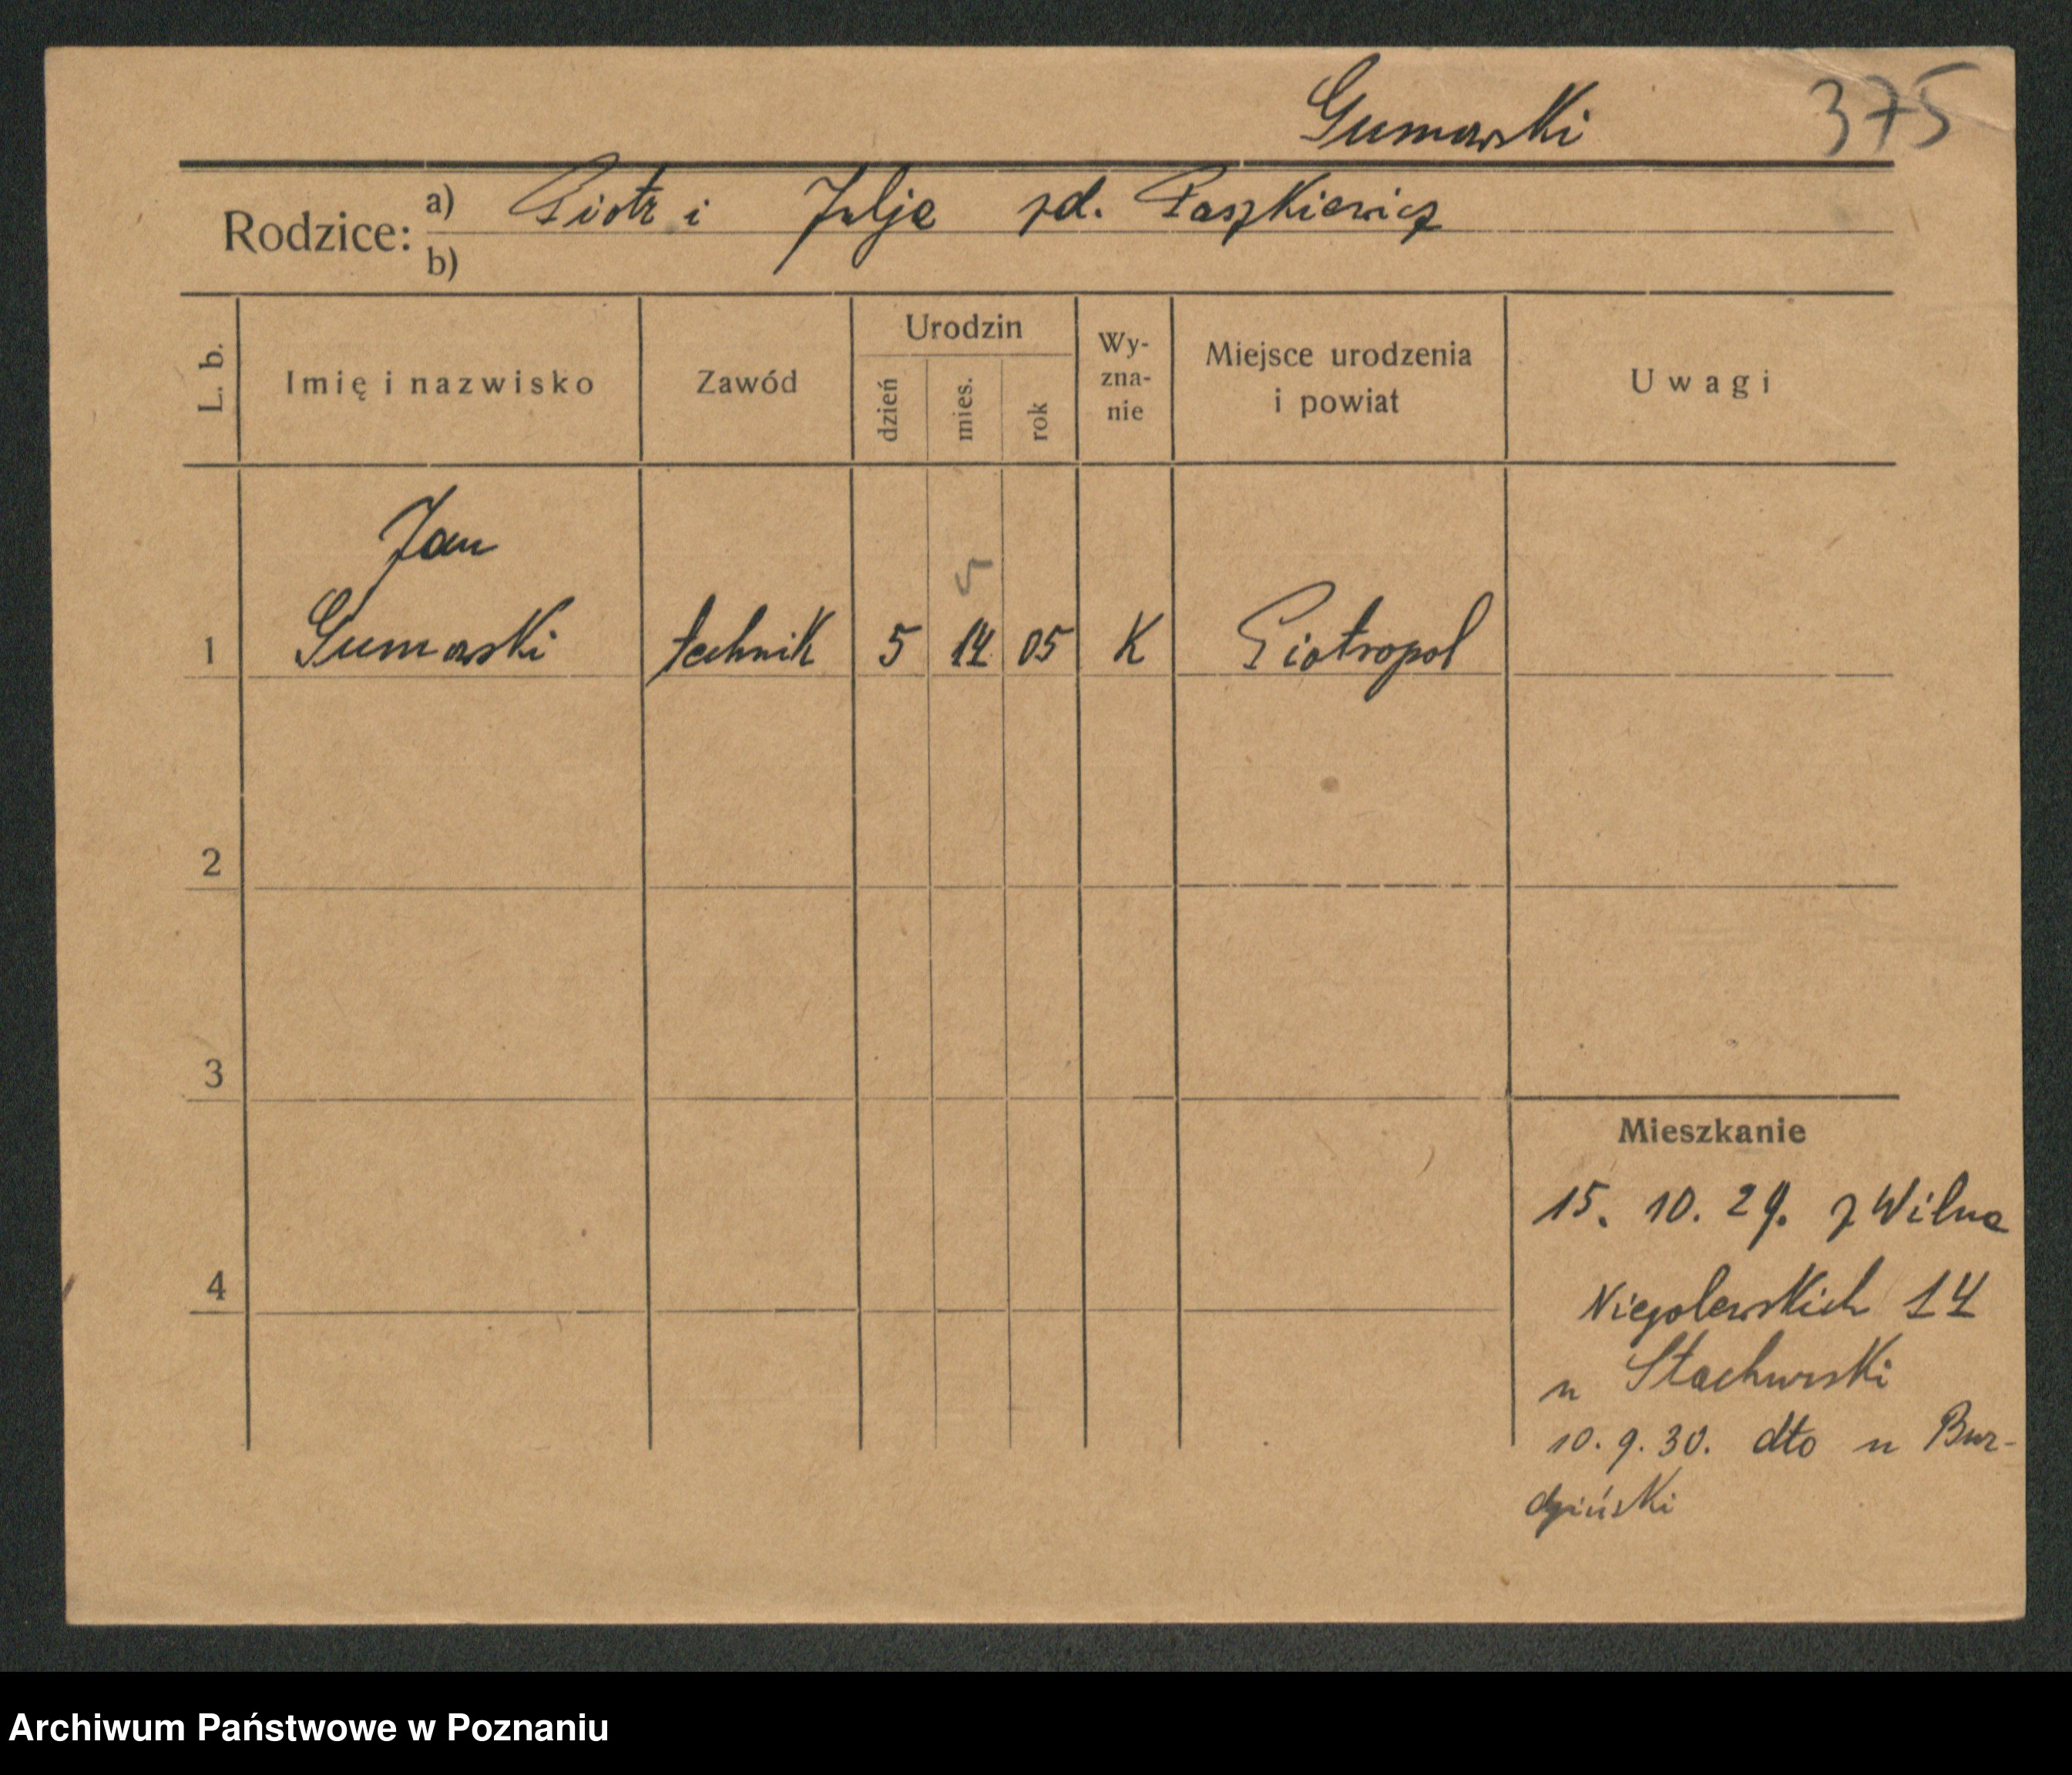 Gumowski 375
Rodzice: a) Piotr i Julja zd. Paszkiewicz
b)
L. b.
Imię i nazwisko
Zawód
Urodzin
dzień
mies.
rok
Wy-
zna-
nie
Miejsce urodzenia
i powiat
Uwagi
Jan
1 Gumowski technik 5 05 K Piotropol
2
3
4
Mieszkanie
15. 10. 29. z Wilna
Niegolewskich 14
u Stachurski
10. 9. 30. dto u Bur-
dziński
Archiwum Państwowe w Poznaniu